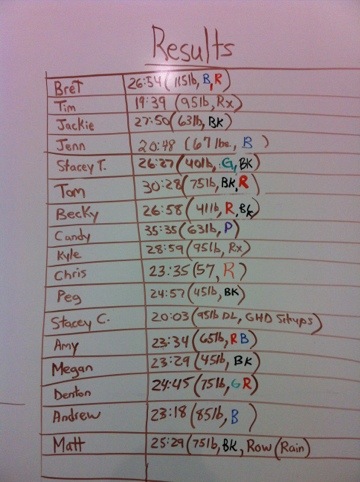 Results
Bret 26:54 (115lb, B,R)
Tim 19:39 (95lb, Rx)
Jackie 27:50 (63lb, BK)
Jenn 20:48 (67lbs, B)
Stacey T. 26:27 (40lb, G, BK)
Tom 30:28 (75lb, BK, R)
Becky 26:58 (41lb, R, BK)
Candy 35:35 (63lb, P)
Kyle 28:59 (95lb, Rx)
Chris 23:35 (57, R)
Peg 24:57 (45lb, BK)
Stacey C. 20:03 (95lb DL, GHD Situps)
Amy 23:34 (65lb, RB)
Megan 23:29 (45lb, BK)
Denton 24:45 (75lb, GR)
Andrew 23:18 (85lb, B)
Matt 25:29 (75lb, BK, Row (Rain)